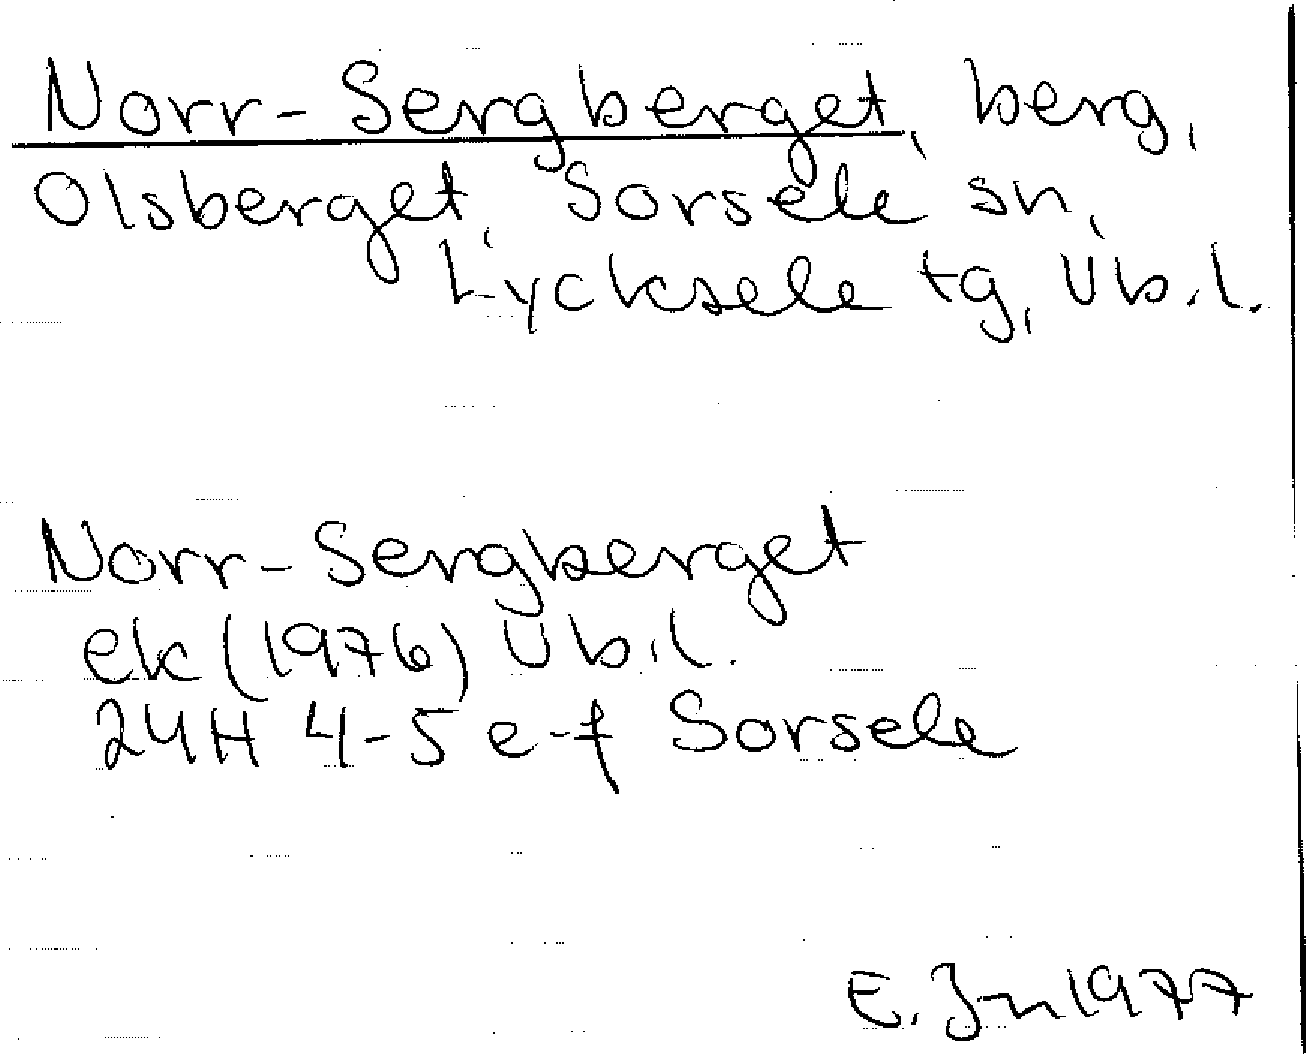 Norr-Sergberget, berg,
Olsberget, Sorsele sn,
Lycksele tg, Vb.l.
Norr-Sergberget
ek (1976) Vb.l.
24H 4-5 e-f Sorsele
E. Jn 1977